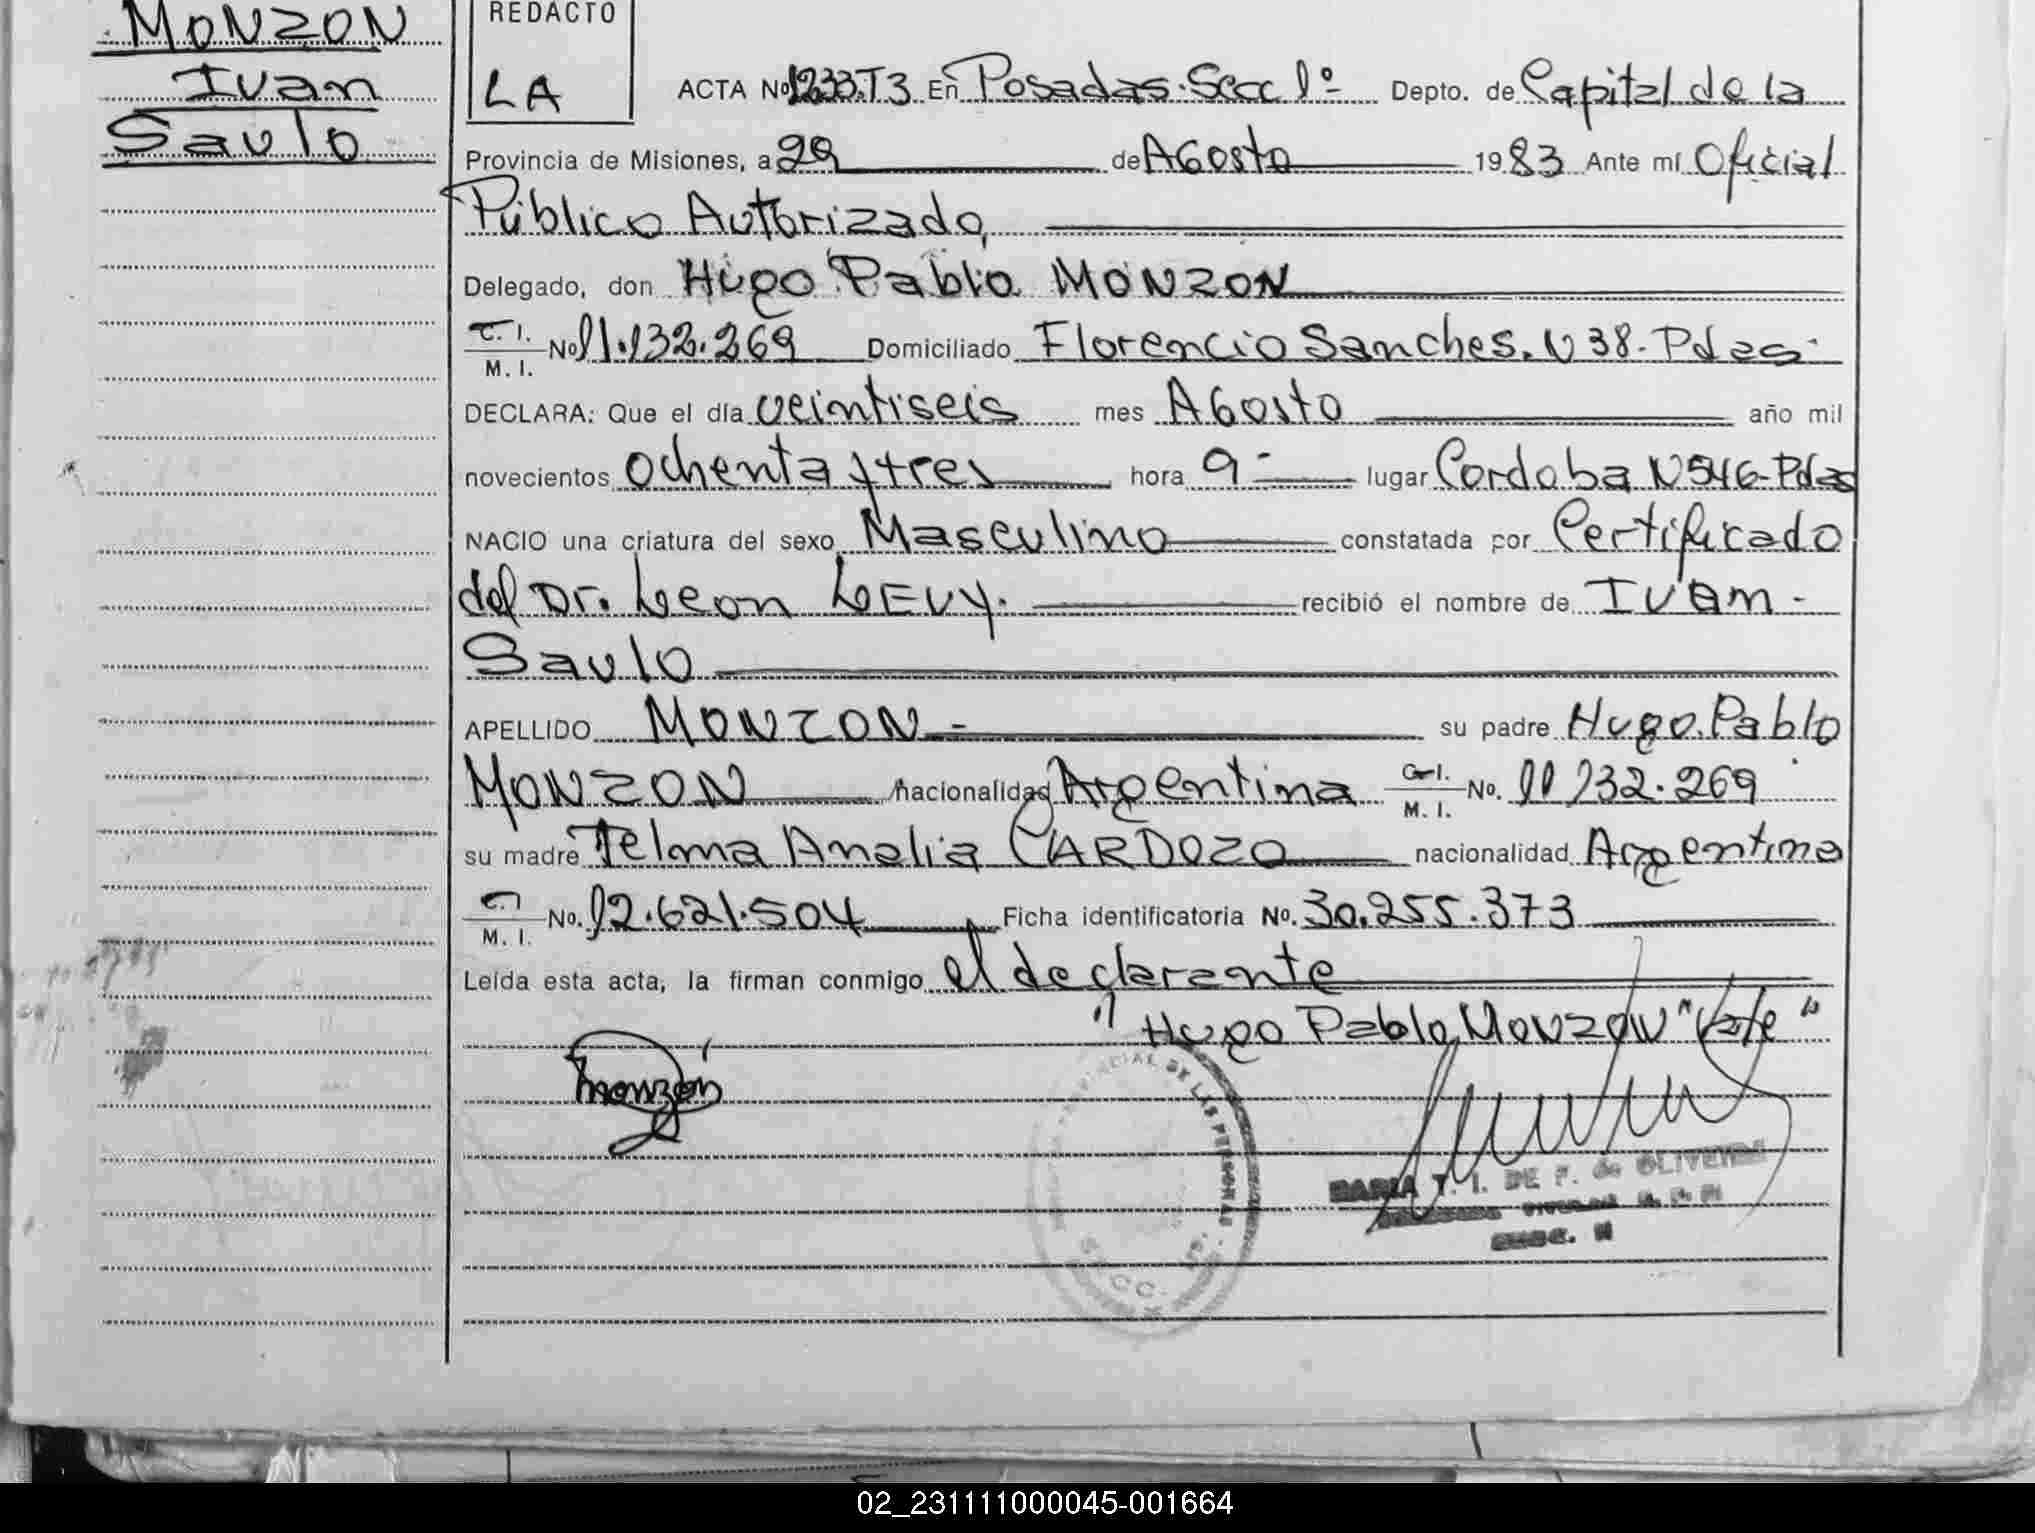 MONZON
Ivan
Saulo
REDACTO
LA
ACTA No 1233.T3 En Posadas.Secc 1º Depto. de Capital de la
Provincia de Misiones, a 29 de AGosto 1983 Ante mí Oficial
Público Autorizado,
Delegado, don Hugo Pablo MONZON
C. I.
M. I. No 11.132.269 Domiciliado Florencio Sanches. N 38. Pdas.
DECLARA: Que el día veintiseis mes AGosto año mil
novecientos ochenta y tres hora 9- lugar Cordoba N 546-Pdas
NACIO una criatura del sexo Masculino constatada por Certificado
del Dr. Leon LEVY. recibió el nombre de Ivan -
Saulo
APELLIDO MONZON - su padre Hugo.Pablo
MONZON nacionalidad Argentina C. I.
M. I. No. 11 132.269
su madre Telma Analia CARDOZO nacionalidad Argentina
C. I.
M. I. No. 12.621.504 Ficha identificatoria No. 30.255.373
Leída esta acta, la firman conmigo el declarante
" Hugo Pablo MONZON "Vale"
monzón
PROVINCIAL DE LAS PERSONAS
S. CC.
MARIA T. I. DE F. de OLIVEIRA
02_231111000045-001664